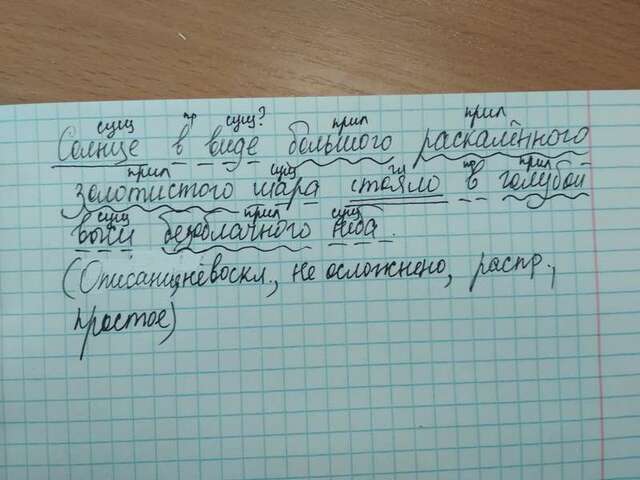 сущ пр сущ? прил прил
Солнце в виде большого раскалённого
прил сущ гл пр прил
золотистого шара стояло в голубой
сущ прил сущ
выси безоблачного неба.
(Описание, невоскл., не осложнено, распр.,
простое)